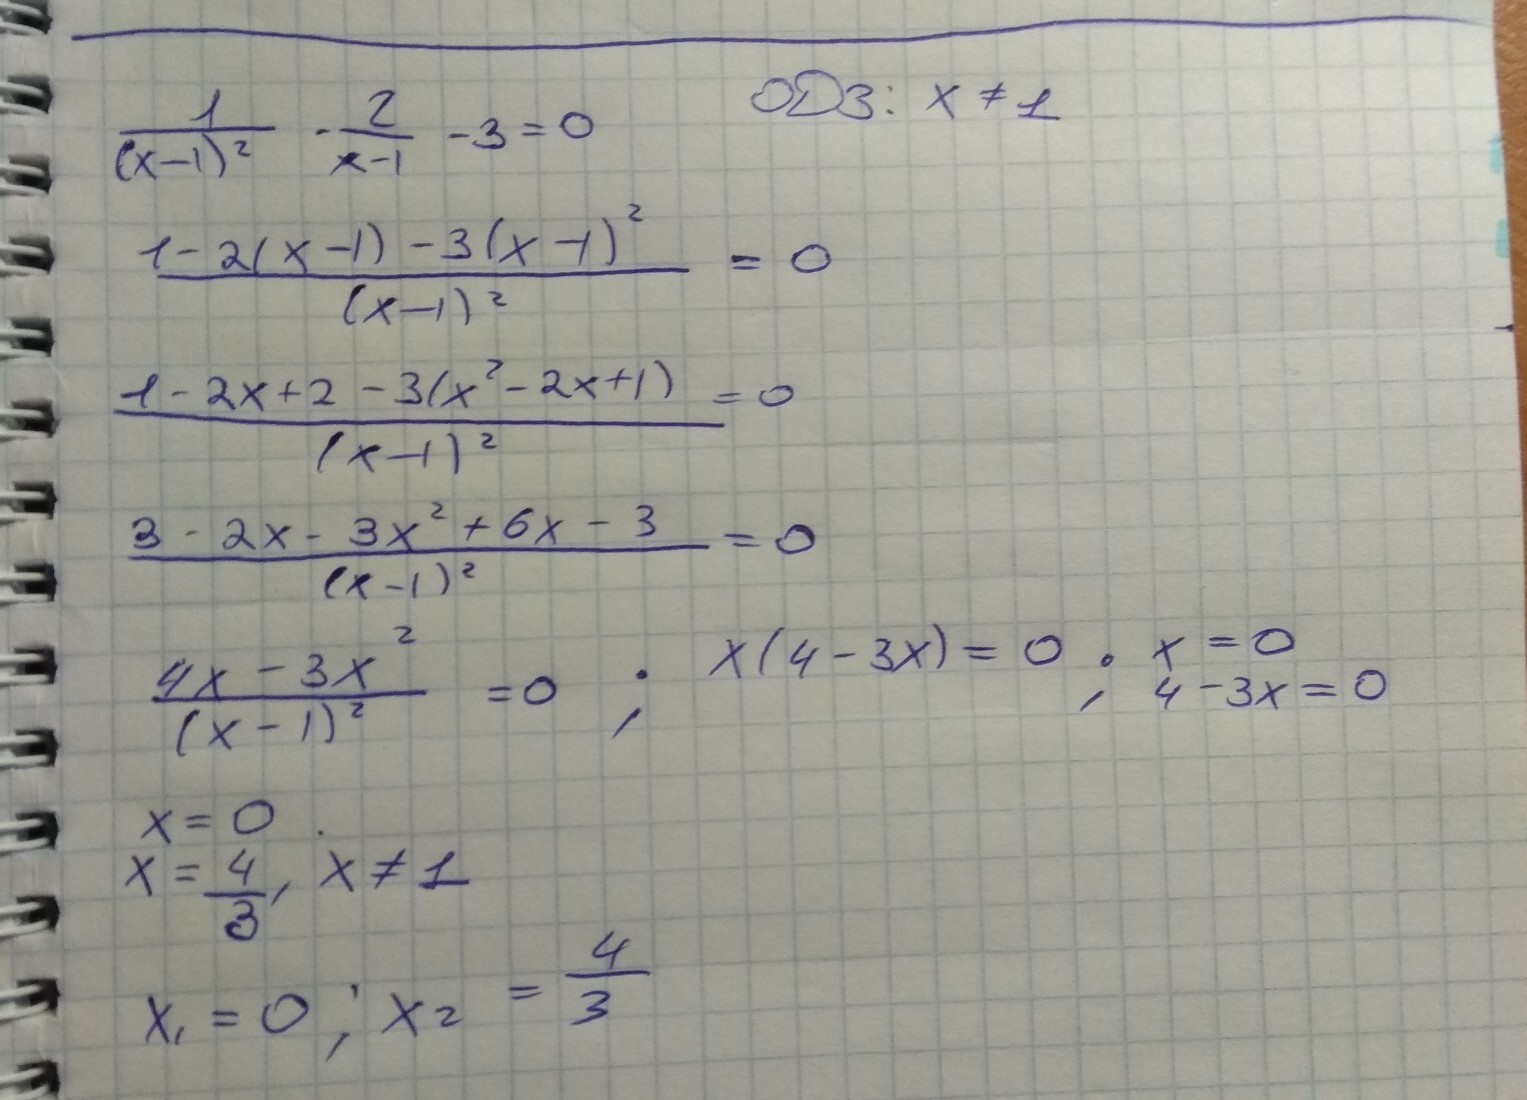 1/(x-1)² - 2/(x-1) - 3 = 0 ОДЗ: x ≠ 1
(1 - 2(x-1) - 3(x-1)²)/(x-1)² = 0
(1 - 2x + 2 - 3(x² - 2x + 1))/(x-1)² = 0
(3 - 2x - 3x² + 6x - 3)/(x-1)² = 0
(4x - 3x²)/(x-1)² = 0 ; x(4 - 3x) = 0 ; x = 0
4 - 3x = 0
x = 0
x = 4/3, x ≠ 1
x₁ = 0 ; x₂ = 4/3